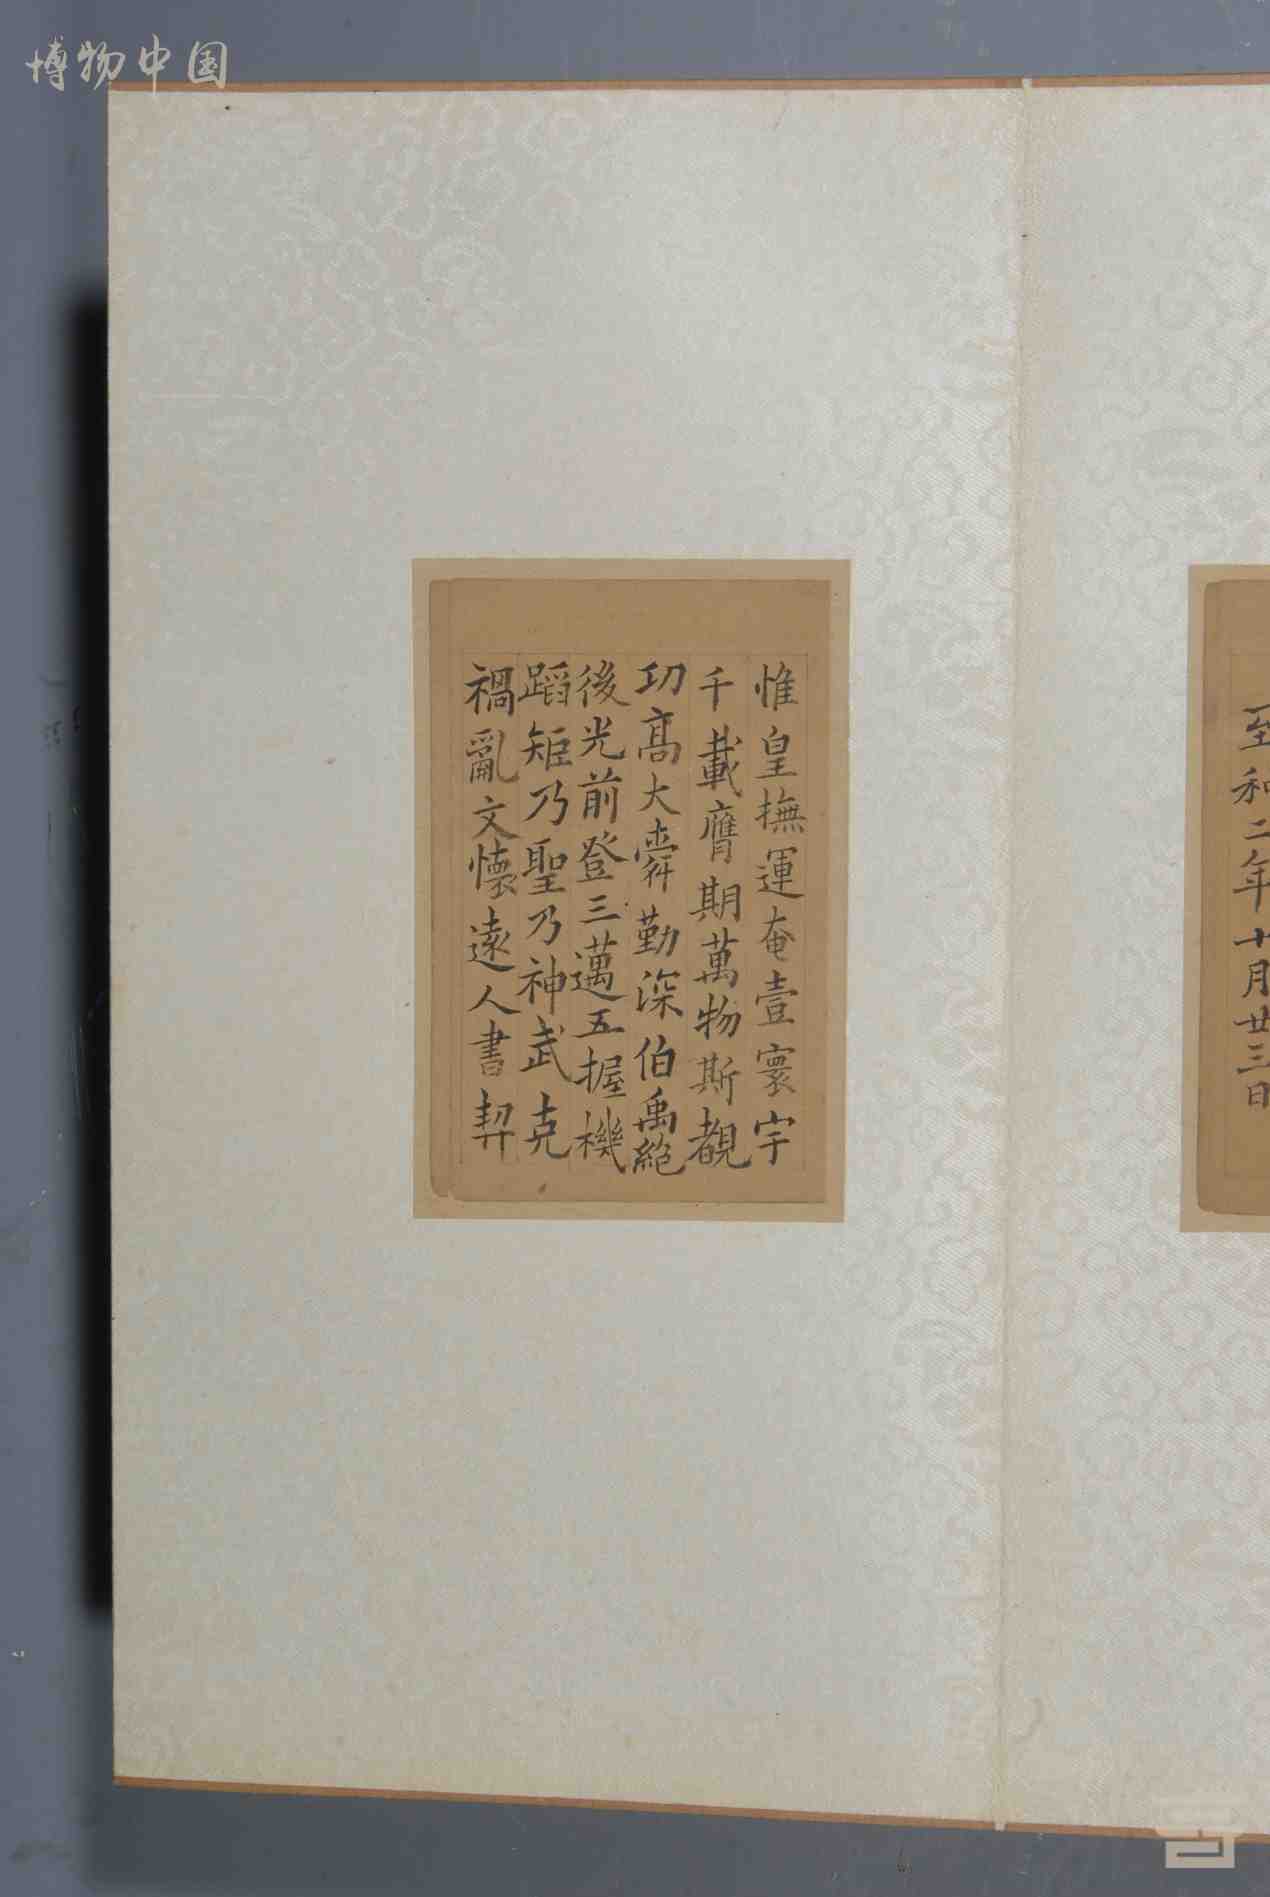 博物中国
至和二年十月廿三日
惟皇撫運奄壹寰宇
千載膺期萬物斯覩
功高大舜勤深伯禹絕
後光前登三邁五握機
蹈矩乃聖乃神武克
禍亂文懷遠人書契